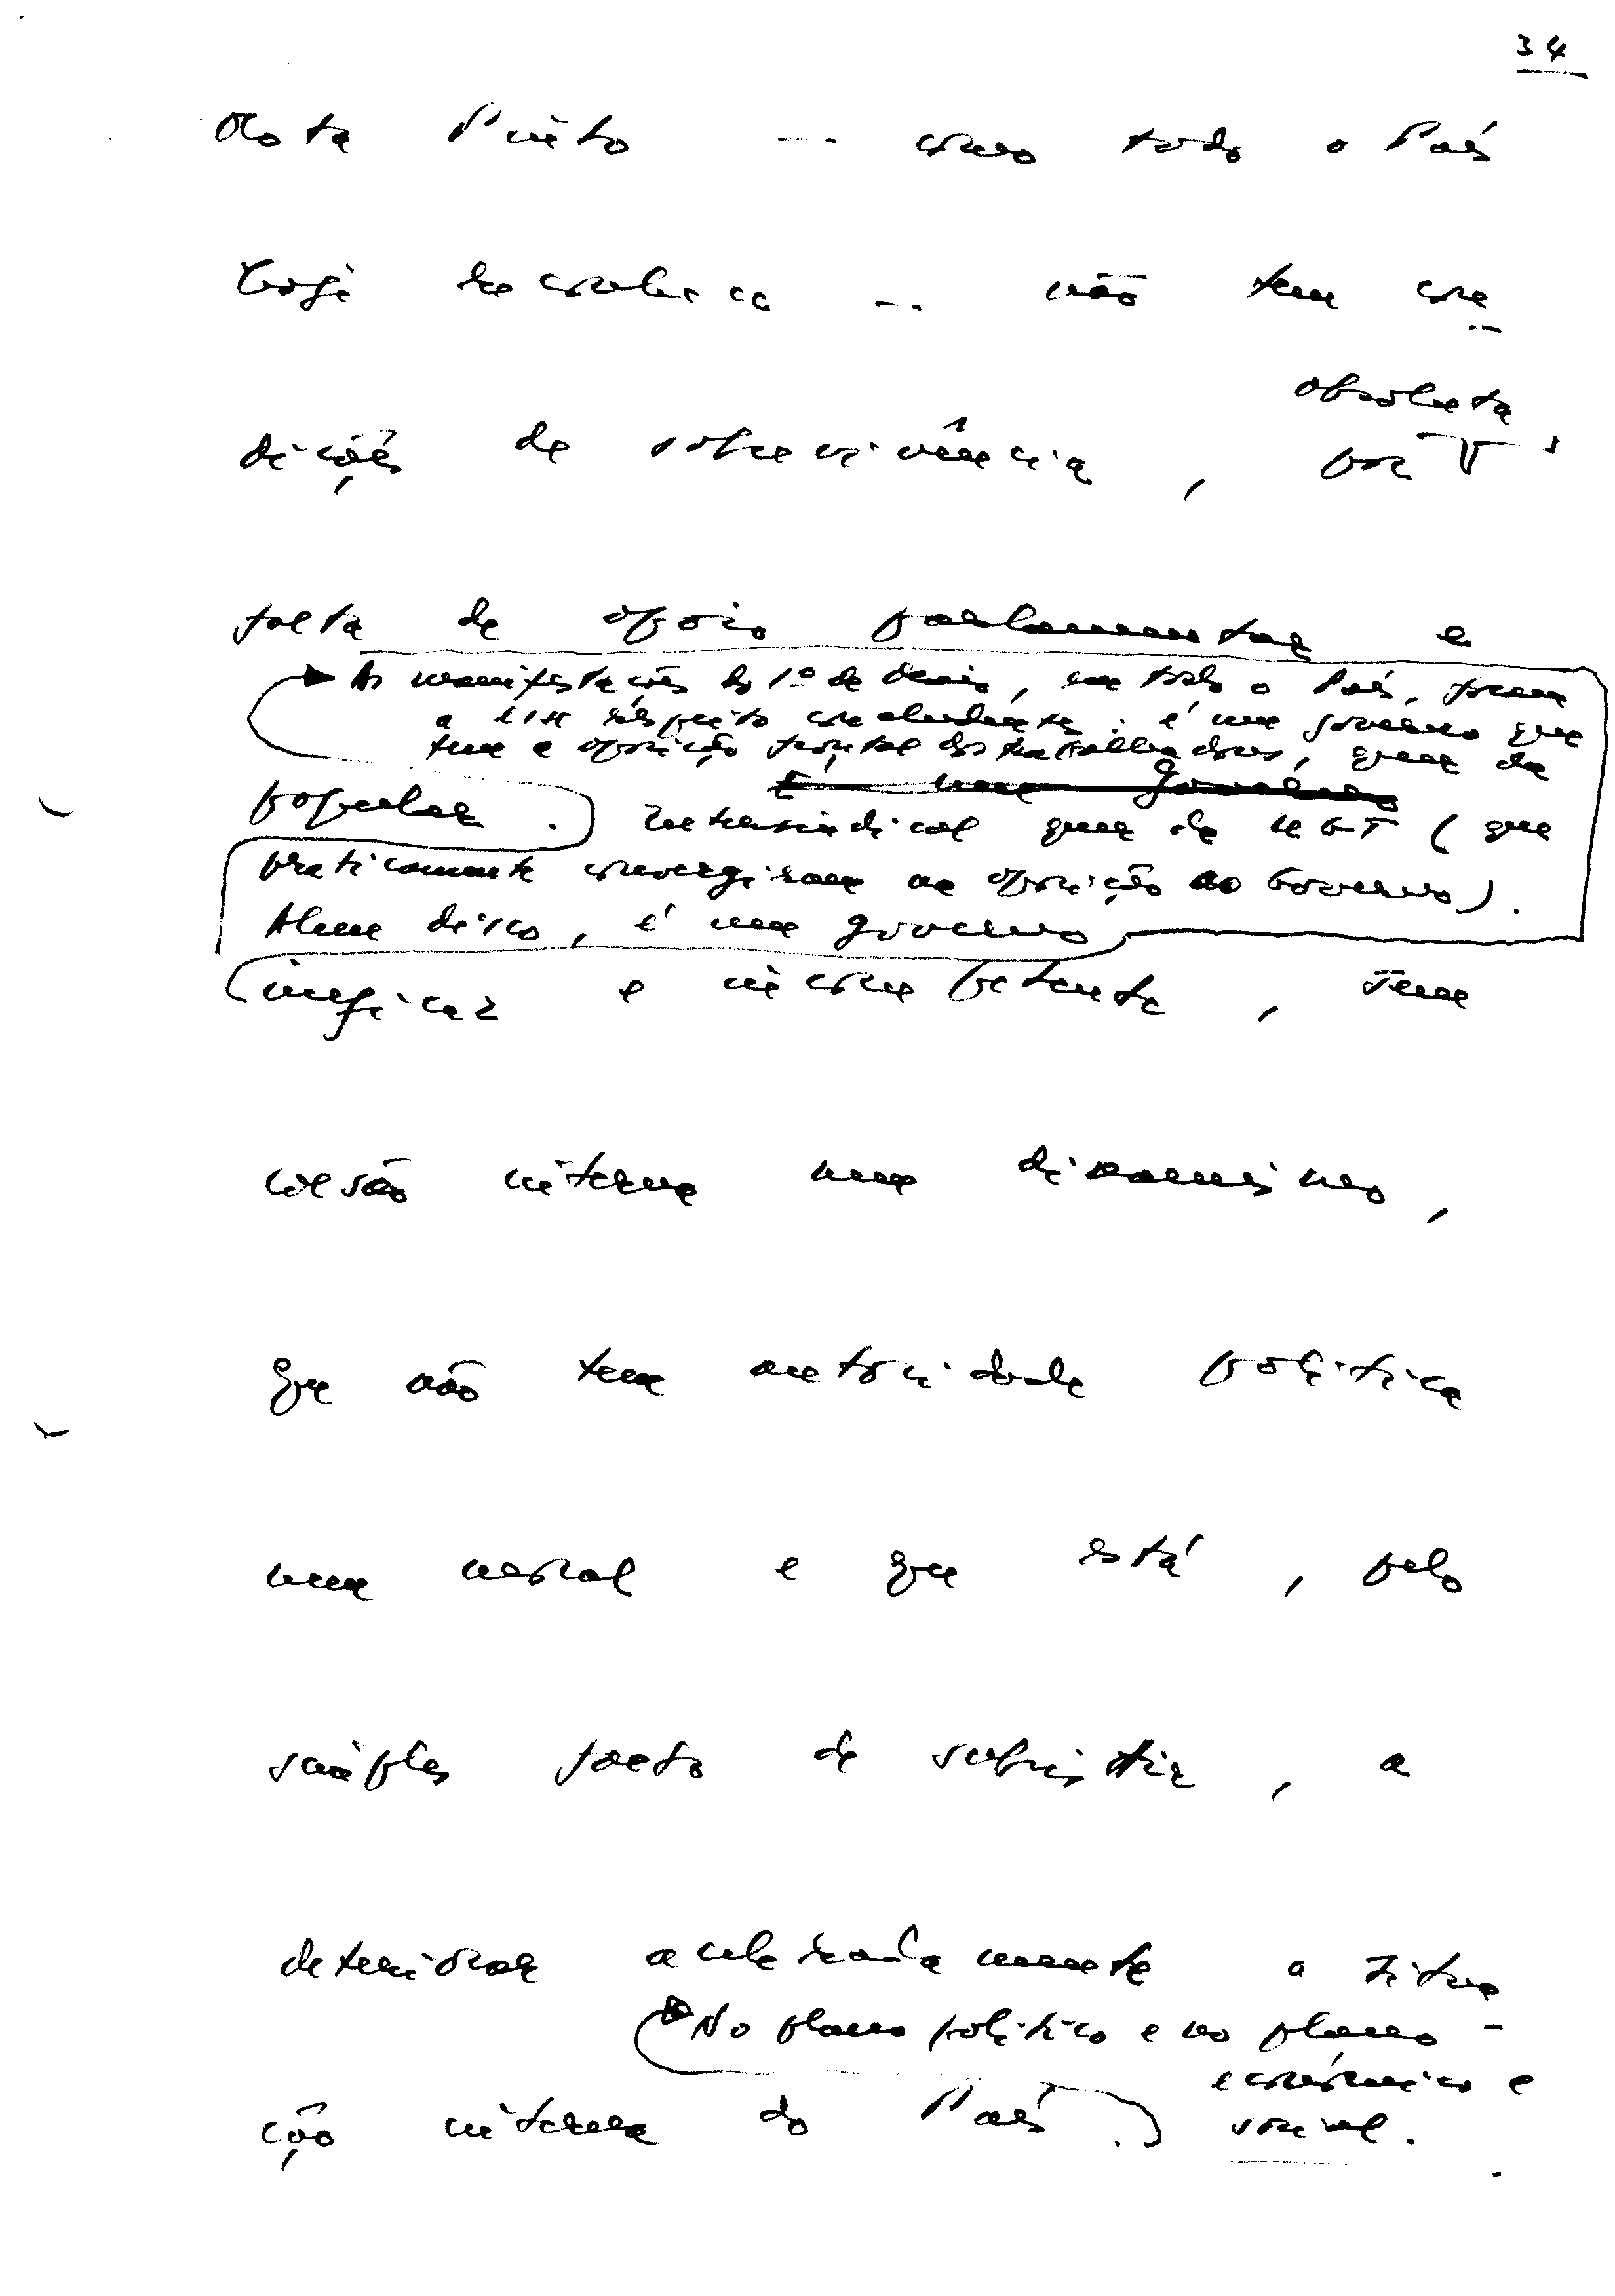 34
Mota Pinto — como todo o País
hoje reconhece — não tem con-
obsoluta
dições de sobrevivência, por
falta de apoio parlamentar e
As manifestações do 1º de Maio, em todo o País, foram
a esse respeito concludentes: é um governo que
tem a oposição frontal dos trabalhadores, quer da
popular. É um Governo
Intersindical quer da UGT (que
praticamente convergiram na oposição ao Governo).
Além disso, é um governo
ineficaz e incompetente, sem
coesão interna nem dinamismo,
que não tem autoridade política
nem moral e que está, pelo
simples facto de subsistir, a
deteriorar aceleradamente a situa-
No plano político e no plano
económico e
ção interna do País. social.